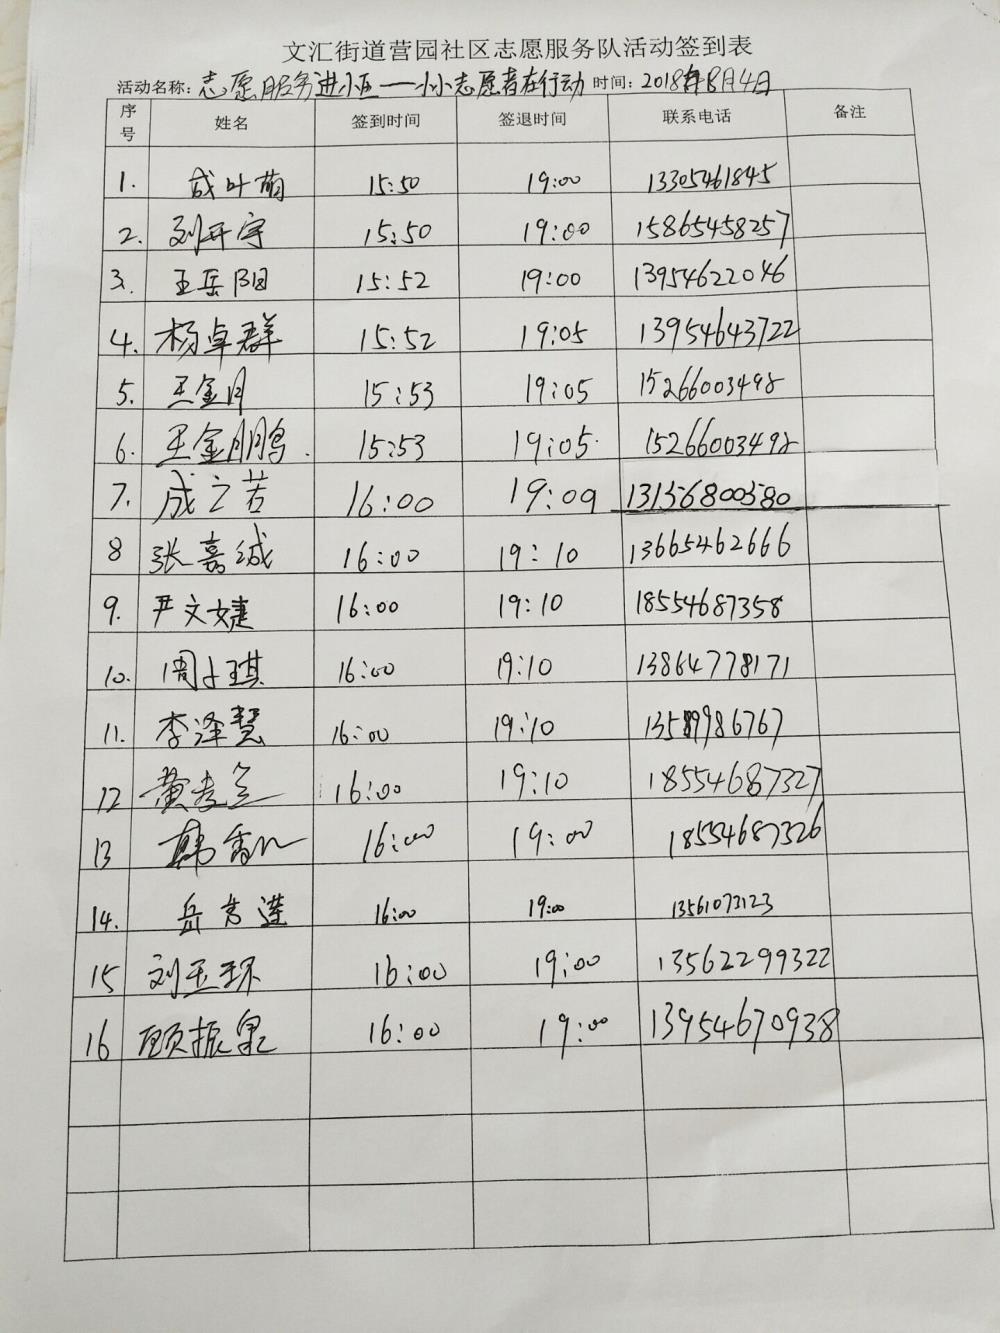 文汇街道营园社区志愿服务队活动签到表
活动名称：志愿服务进小区——小小志愿者在行动 时间：2018年8月4日
序号 姓名 签到时间 签退时间 联系电话 备注
1. 成叶萌 15:50 19:00 13305461845
2. 刘开宇 15:50 19:00 15865458257
3. 王岳阳 15:52 19:00 13954622046
4. 杨卓群 15:52 19:05 13954643722
5. 王金月 15:53 19:05 15266003498
6. 王金鹏 15:53 19:05 15266003498
7. 成之若 16:00 19:09 13156800580
8 张嘉诚 16:00 19:10 13665462666
9. 尹文婕 16:00 19:10 18554687358
10. 周子琪 16:00 19:10 13864778171
11. 李泽慧 16:00 19:10 13589986767
12 黄 16:00 19:10 18554687327
13 韩香 16:00 19:00 18554687326
14. 岳 莲 16:00 19:00 13561073123
15 刘玉环 16:00 19:00 13562299322
16 顾振泉 16:00 19:00 13954670938